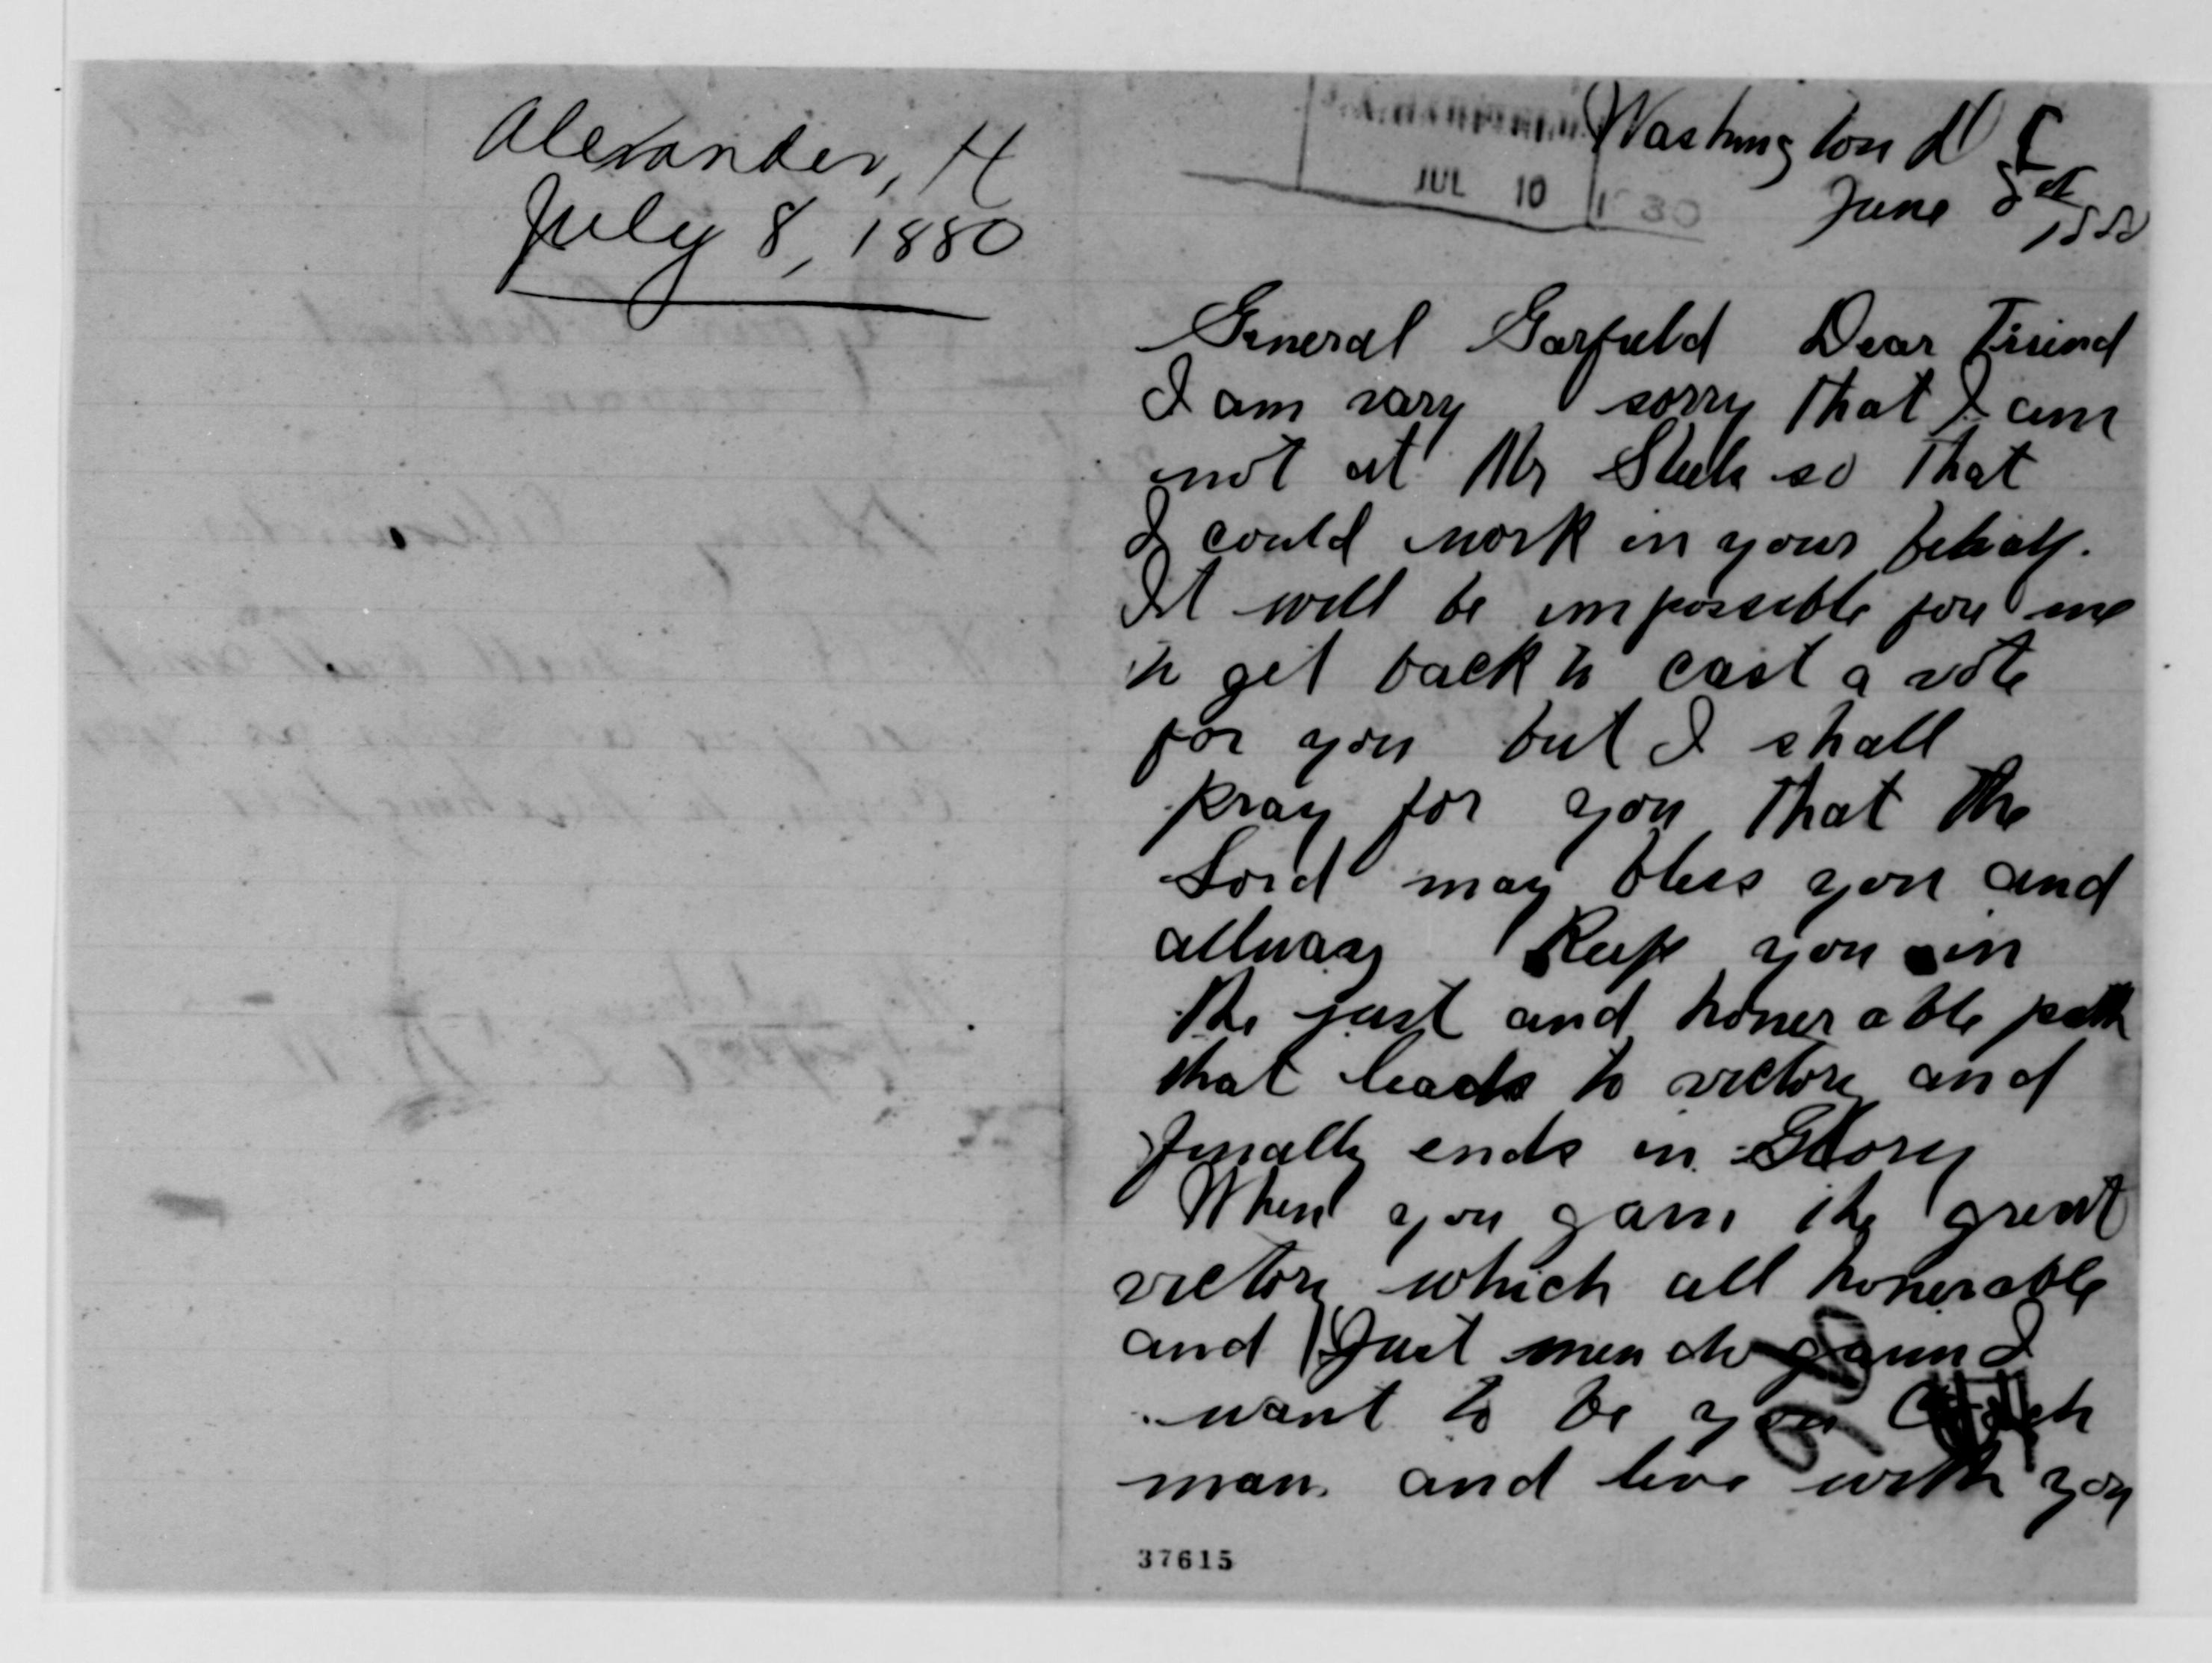 Alexander, H
July 8, 1880
Washington D C
JUL 10
June 8th
1880
General Garfield Dear Friend
I am vary sorry that I am
not at Mr so that
I could work in your behalf.
It will be impossible for me
to get back to cast a vote
for you but I shall
pray for you that the
Lord may bless you and
allways Keep you in
the just and honerable path
that leads to victory and
finally ends in Glory
When you gain the great
victory which all honerable
and Just men do I
want to be you
man and live with you
37615